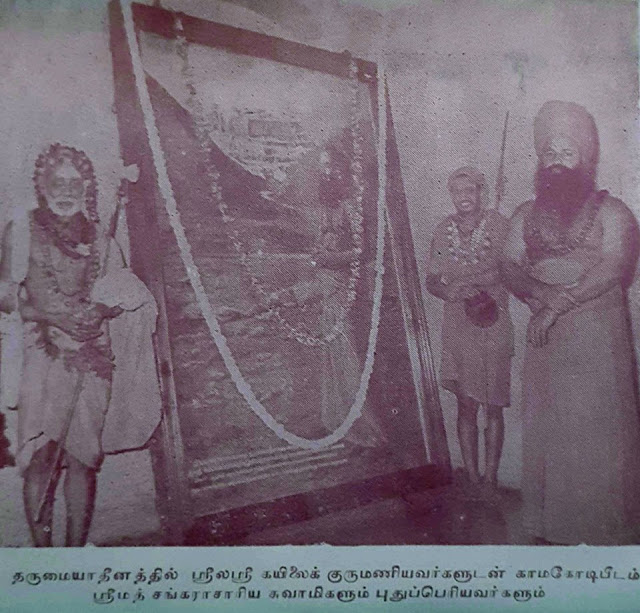 தருமையாதீனத்தில் ஸ்ரீலஸ்ரீ கயிலைக் குருமணியவர்களுடன் காமகோடிபீடம்
ஸ்ரீமத் சங்கராசாரிய சுவாமிகளும் புதுப்பெரியவர்களும்